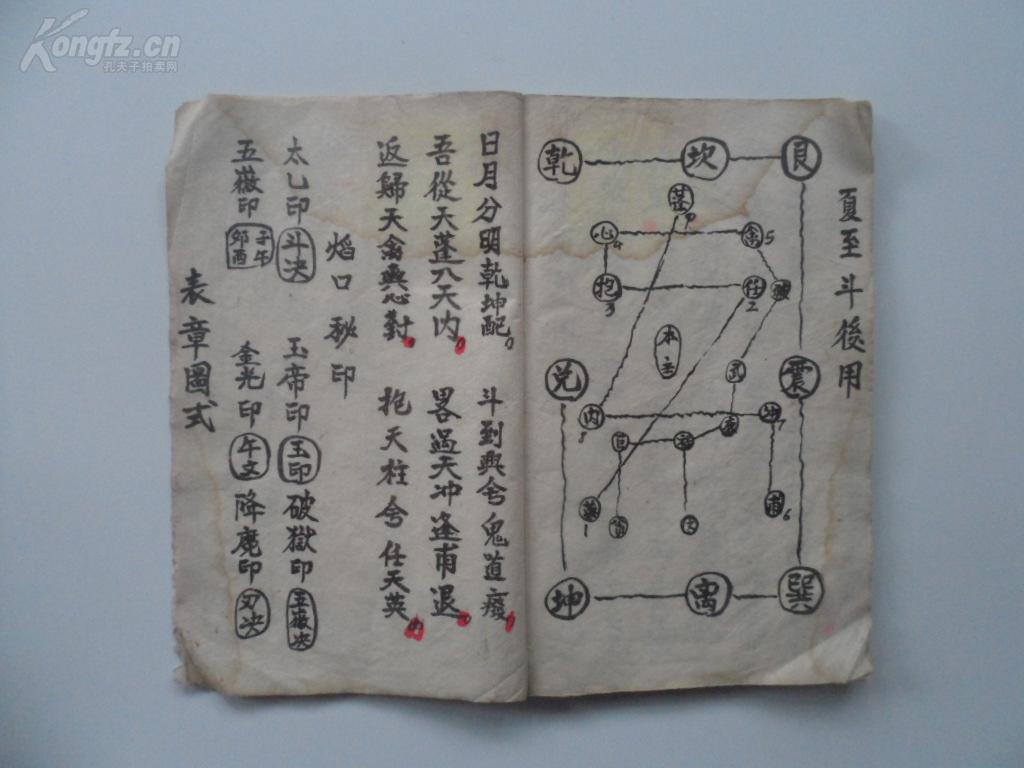 Kongfz.cn
孔夫子拍卖网
夏至斗後用
乾 坎 艮
蓬 9
心 4 禽 5
抱 3 任 2
本主
兌 震
武
内 8 冲 7
廉
甫 6
1
文
坤 离 巽
日月分明乾坤配 斗到與兮鬼道癈
吾從天蓬入天内 畧過天冲逢甫退
返歸天禽與心對 抱天柱兮任天英
焰口秘印
太乚印 斗决 玉帝印 玉印 破獄印 五嶽决
五嶽印 子午卯酉 金光印 午文 降魔印 刃决
表章圖式